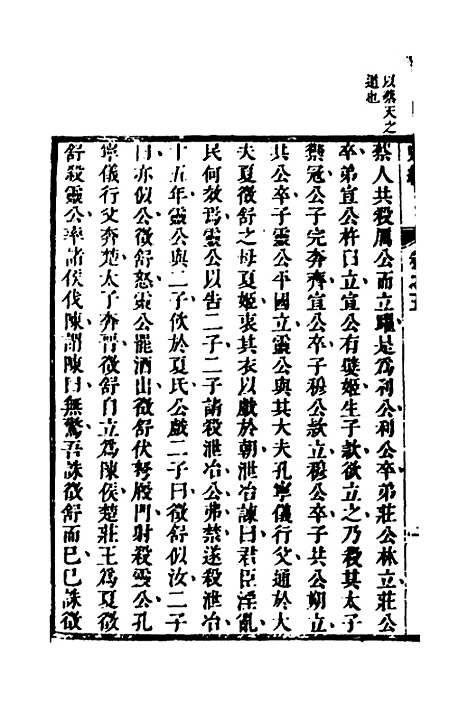 以蔡天之
道也
蔡人共殺厲公而立躍是爲利公利公卒弟莊公林立莊公
卒弟宣公杵臼立宣公有嬖姬生子款欲立之乃殺其太子
禦冠公子完奔齊宣公卒子穆公款立穆公卒子共公朔立
共公卒子靈公平國立靈公與其大夫孔寧儀行父通於大
夫夏徵舒之母夏姬衷其衣以戲於朝泄冶諫曰君臣淫亂
民何效焉靈公以告二子二子請殺泄冶公弗禁遂殺泄冶
十五年靈公與二子飲於夏氏公戲二子曰徵舒似汝二子
曰亦似公徵舒怒靈公罷酒出徵舒伏弩廄門射殺靈公孔
寧儀行父奔楚太子奔晉徵舒自立爲陳侯楚莊王爲夏徵
舒殺靈公率諸侯伐陳謂陳曰無驚吾誅徵舒而已已誅徵